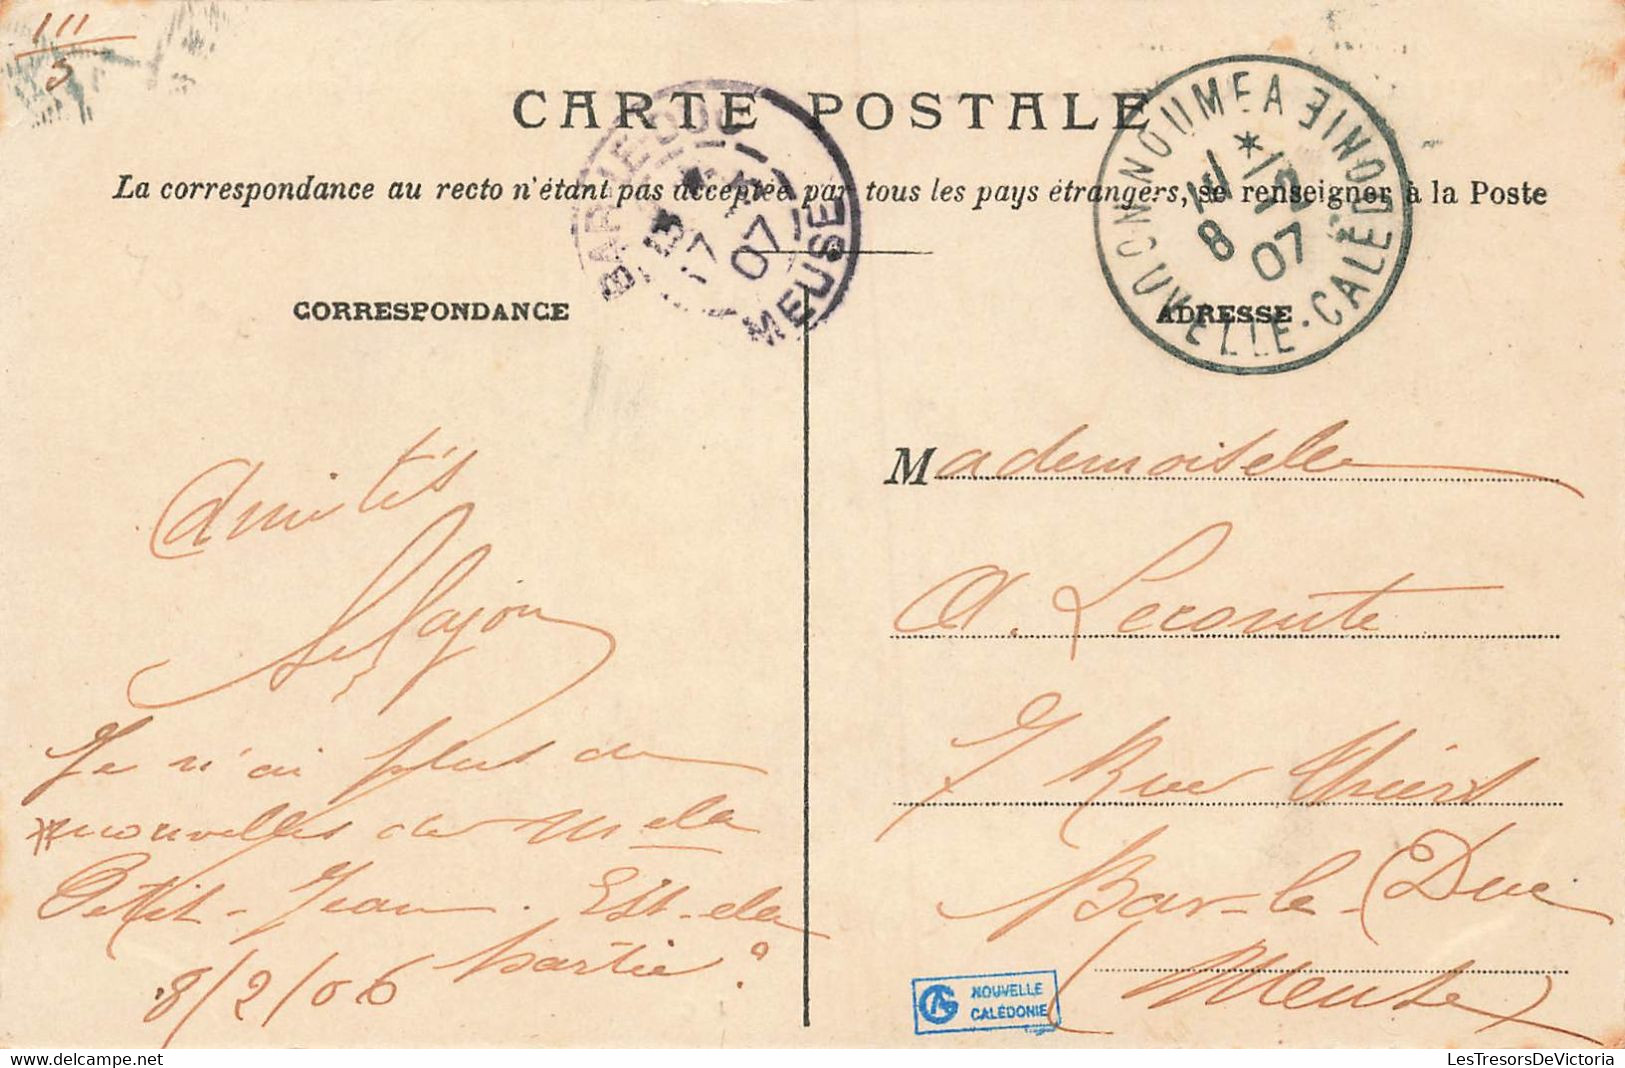 111
3
CARTE POSTALE
La correspondance au recto n'étant pas acceptée par tous les pays étrangers, se renseigner à la Poste
BAR-LE-DUC
07
MEUSE
NOUMEA
NOUVELLE-CALEDONIE
8
07
CORRESPONDANCE
ADRESSE
Amitiés
Je n'ai plus de
nouvelles de Melle
Petit-Jean. Est-elle
partie ?
8/2/06
Mademoiselle
A. Lecomte
7 Rue Thiers
Bar-le-Duc
(Meuse)
NOUVELLE
CALÉDONIE
LesTresorsDeVictoria